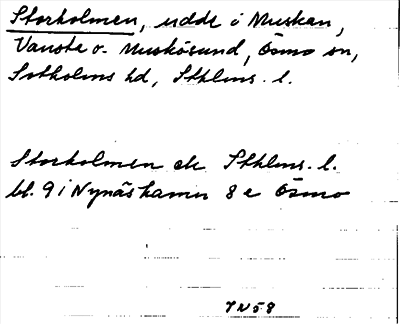 Storholmen, udde i Muskan,
Vansta o. Muskösund, Ösmo sn,
Sotholms hd, Sthlms. l.
Storholmen ek Sthlms. l.
bl. 9 i Nynäshamn 8 e Ösmo
7N58